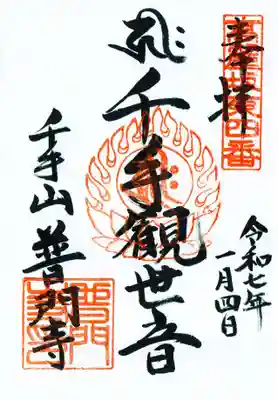 奉拝
四番
令和七年
一月四日
千手観世音
千手山普門寺